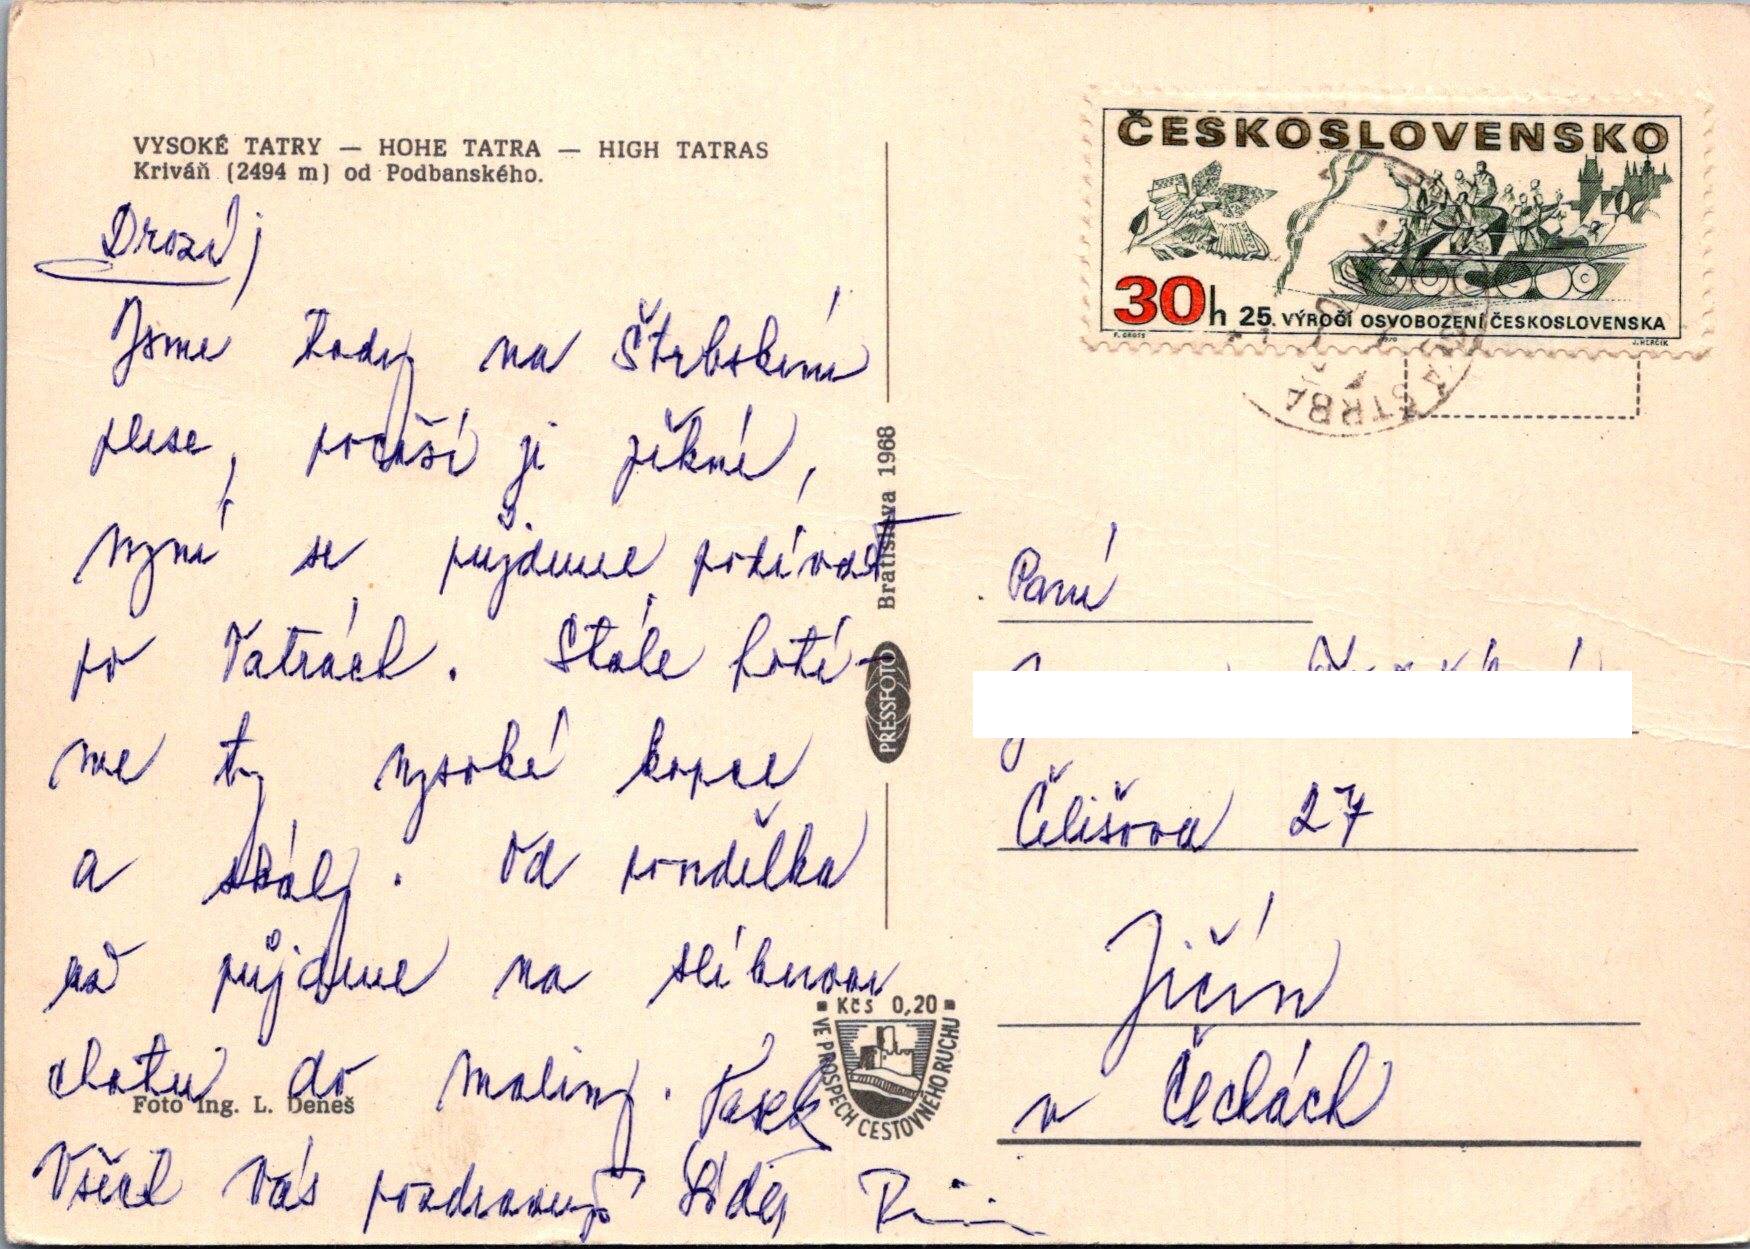 VYSOKÉ TATRY — HOHE TATRA — HIGH TATRAS
Kriváň (2494 m) od Podbanského.
Drazí,
Jsme tady na Štrbském
plese, počasí je pěkné,
nyní se půjdeme podívat
po Tatrách. Stále fotí-
me ty vysoké kopce
a skály. Od pondělka
už půjdeme na slíbenou
chatu do maliny. Vašek
Všech Vás pozdravují
Foto Ing. L. Deneš
PRESSFOTO Bratislava 1968
Kčs 0,20
VE PROSPECH CESTOVNÉHO RUCHU
ČESKOSLOVENSKO
30h 25. VÝROČÍ OSVOBOZENÍ ČESKOSLOVENSKA
J. HERČÍK
ŠTRBA
Paní
Čelišova 27
Jičín
v Čechách